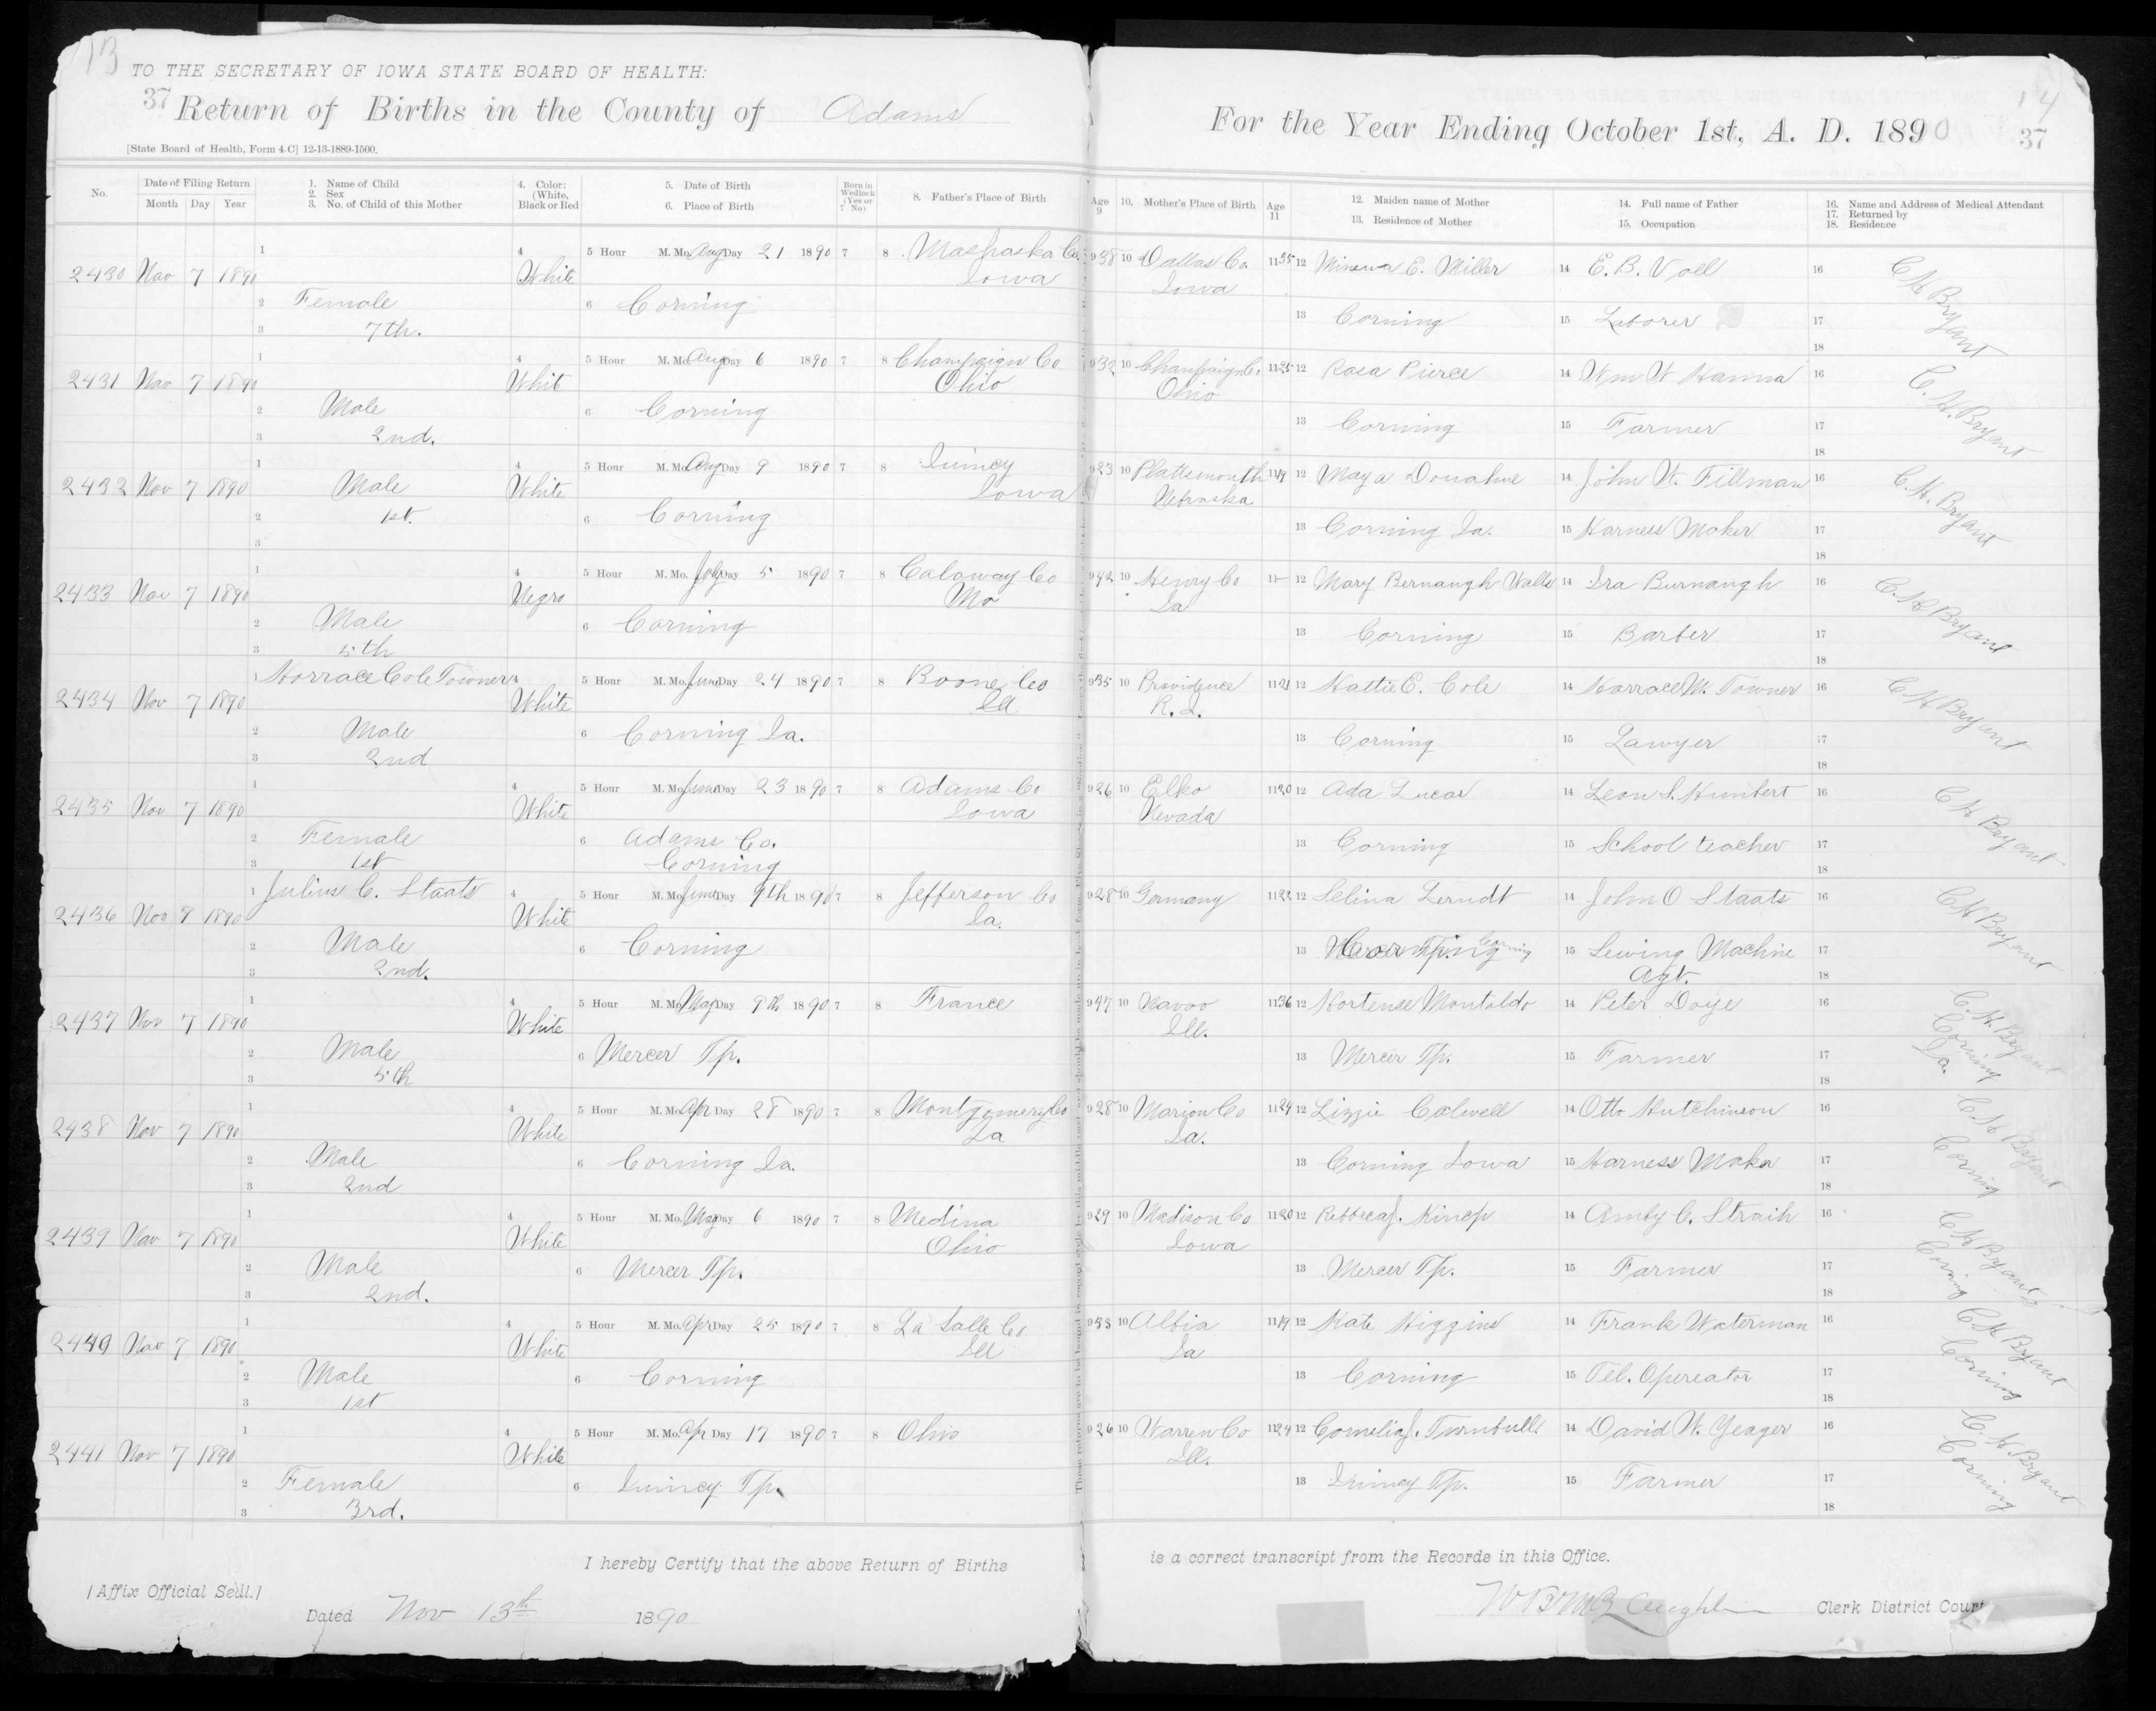 13
TO THE SECRETARY OF IOWA STATE BOARD OF HEALTH:
37 Return of Births in the County of Adams
[State Board of Health, Form 4 C] 12-13-1889-1500.
For the Year Ending October 1st, A. D. 1890
14
37
No. Date of Filing Return Month Day Year
1. Name of Child
2. Sex
3. No. of Child of this Mother
4. Color: (White, Black or Red
5. Date of Birth
6. Place of Birth
Born in Wedlock (Yes or 7 No)
8. Father's Place of Birth
Age 9
10. Mother's Place of Birth
Age 11
12. Maiden name of Mother
13. Residence of Mother
14. Full name of Father
15. Occupation
16. Name and Address of Medical Attendant
17. Returned by
18. Residence
2430 Nov 7 1890 1 4 White 5 Hour M. Mo. Aug Day 21 1890 7 8 Mashaska Co. Iowa 9 38 10 Dallas Co. Iowa 11 35 12 Minerva E. Miller 14 E. B. Voll 16 C H Bryant
2 Female 6 Corning 13 Corning 15 Laborer 17
3 7th. 18
2431 Nov 7 1890 1 4 Whit 5 Hour M. Mo. Aug Day 6 1890 7 8 Champaign Co Ohio 9 32 10 Champaign Co. Ohio 11 25 12 Rosa Pierce 14 Wm W Hanna 16 C. H. Bryant
2 Male 6 Corning 13 Corning 15 Farmer 17
3 2nd. 18
2432 Nov 7 1890 1 Male 4 White 5 Hour M. Mo. Aug Day 9 1890 7 8 Quincy Iowa 9 23 10 Plattsmouth Nebraska 11 19 12 May a Donahue 14 John W. Tillman 16 C. H. Bryant
2 1st. 6 Corning 13 Corning Ia. 15 Harness Maker 17
3 18
2433 Nov 7 1890 1 4 Negro 5 Hour M. Mo. July Day 5 1890 7 8 Caloway Co Mo 9 42 10 Henry Co Ia 11 - 12 Mary Bernaugh Walls 14 Ira Burnaugh 16 C. H. Bryant
2 Male 6 Corning 13 Corning 15 Barber 17
3 5th 18
2434 Nov 7 1890 1 Horrace Cole Towner 4 White 5 Hour M. Mo. June Day 24 1890 7 8 Boone Co Ia 9 35 10 Providence R. I. 11 21 12 Hattie E. Cole 14 Harrace M. Towner 16 C H Bryant
2 Male 6 Corning Ia. 13 Corning 15 Lawyer 17
3 2nd 18
2435 Nov 7 1890 1 4 White 5 Hour M. Mo. June Day 23 1890 7 8 Adams Co Iowa 9 26 10 Elko Nevada 11 20 12 Ada Lucas 14 Leon S. Humbert 16 C H Bryant
2 Female 6 Adams Co. Corning 13 Corning 15 School teacher 17
3 1st 18
2436 Nov 7 1890 1 Julius C. Staats 4 White 5 Hour M. Mo. June Day 9th 1890 7 8 Jefferson Co Ia. 9 28 10 Germany 11 22 12 Selina Lerndt 14 John O Staats 16 C H Bryant
2 Male 6 Corning 13 Corning 15 Sewing Machine Agt. 17
3 2nd. 18
2437 Nov 7 1890 1 4 White 5 Hour M. Mo. May Day 9th 1890 7 8 France 9 47 10 Navoo Ill. 11 36 12 Hortense Montaldo 14 Peter Doye 16 C. H. Bryant Corning Ia.
2 Male 6 Mercer Tp. 13 Mercer Tp. 15 Farmer 17
3 5th 18
2438 Nov 7 1890 1 4 White 5 Hour M. Mo. Apr Day 28 1890 7 8 Montgomery Co Ia 9 28 10 Marion Co Ia. 11 24 12 Lizzie Calwell 14 Otto Hutchinson 16 C H Bryant Corning
2 Male 6 Corning Ia. 13 Corning Iowa 15 Harness Maker 17
3 2nd 18
2439 Nov 7 1890 1 4 White 5 Hour M. Mo. May Day 6 1890 7 8 Medina Ohio 9 29 10 Madison Co Iowa 11 20 12 Rebbeca J. 14 Amby C. Straih 16 C H Bryant Corning
2 Male 6 Mercer Tp. 13 Mercer Tp. 15 Farmer 17
3 2nd. 18
2440 Nov 7 1890 1 4 White 5 Hour M. Mo. Apr Day 25 1890 7 8 La Salle Co Ill 9 33 10 Albia Ia 11 19 12 Kate Higgins 14 Frank Waterman 16 C H Bryant Corning
2 Male 6 Corning 13 Corning 15 Tel. Opereator 17
3 1st 18
2441 Nov 7 1890 1 4 White 5 Hour M. Mo. Apr Day 17 1890 7 8 Ohio 9 26 10 Warren Co Ill. 11 24 12 Cornelia J. Turnbull 14 David W. Yeager 16 C. H. Bryant Corning
2 Female 6 Quincy Tp. 13 Quincy Tp. 15 Farmer 17
3 3rd. 18
I hereby Certify that the above Return of Births is a correct transcript from the Records in this Office.
[Affix Official Seal.]
Dated Nov 13th 1890
Clerk District Court